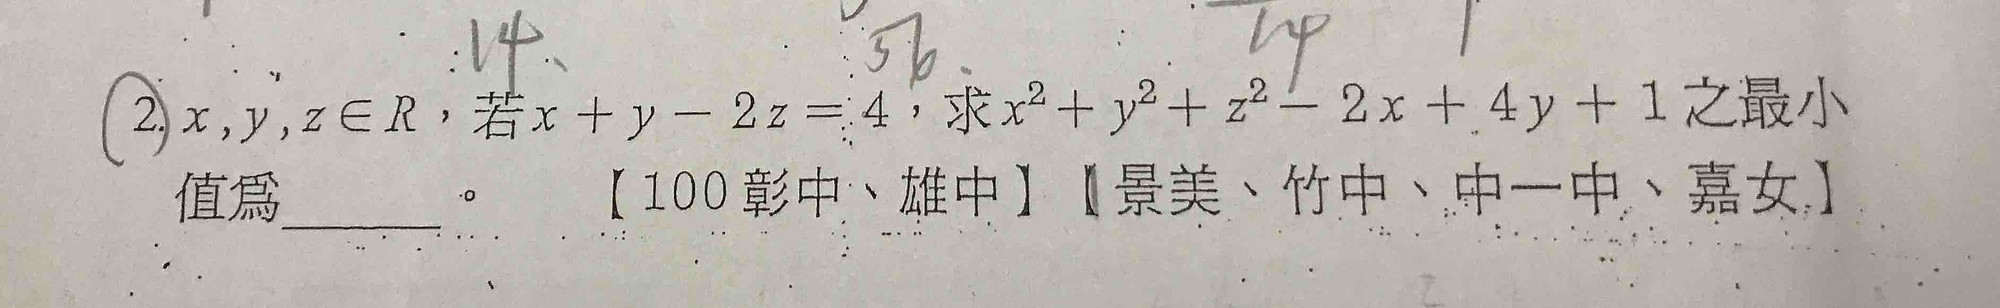 14、 56. 14
2. x, y, z ∈ R，若 x + y − 2z = 4，求 x² + y² + z² − 2x + 4y + 1 之最小
值爲______。 【100彰中、雄中】【景美、竹中、中一中、嘉女】